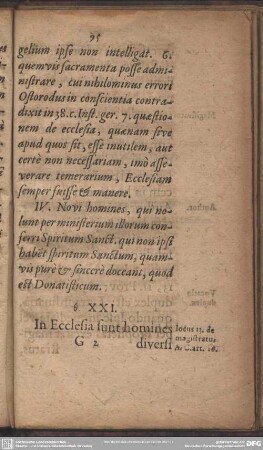 95
gelium ipse non intelligat. 6.
quemvis sacramenta posse admi-
nistrare, cui nihilominus errori
Ostorodus in conscientia contra-
dixit in 38.c. Inst. ger. 7. quæstio-
nem de ecclesia, quænam sive
apud quos sit, esse inutilem, aut
certè non necessariam, imò asse-
verare temerarium, Ecclesiam
semper fuisse & manere.
IV. Novi homines, qui no-
lunt per ministerium illorum con-
ferri Spiritum Sanct. qui non ipsi
habēt spiritum Sanctum, quam-
vis purè & sincerè doceant, quod
est Donatisticum.
§. XXI.
In Ecclesia sunt homines
locus 15. de
magistratu.
A. C. art. 16.
G 2 diversi